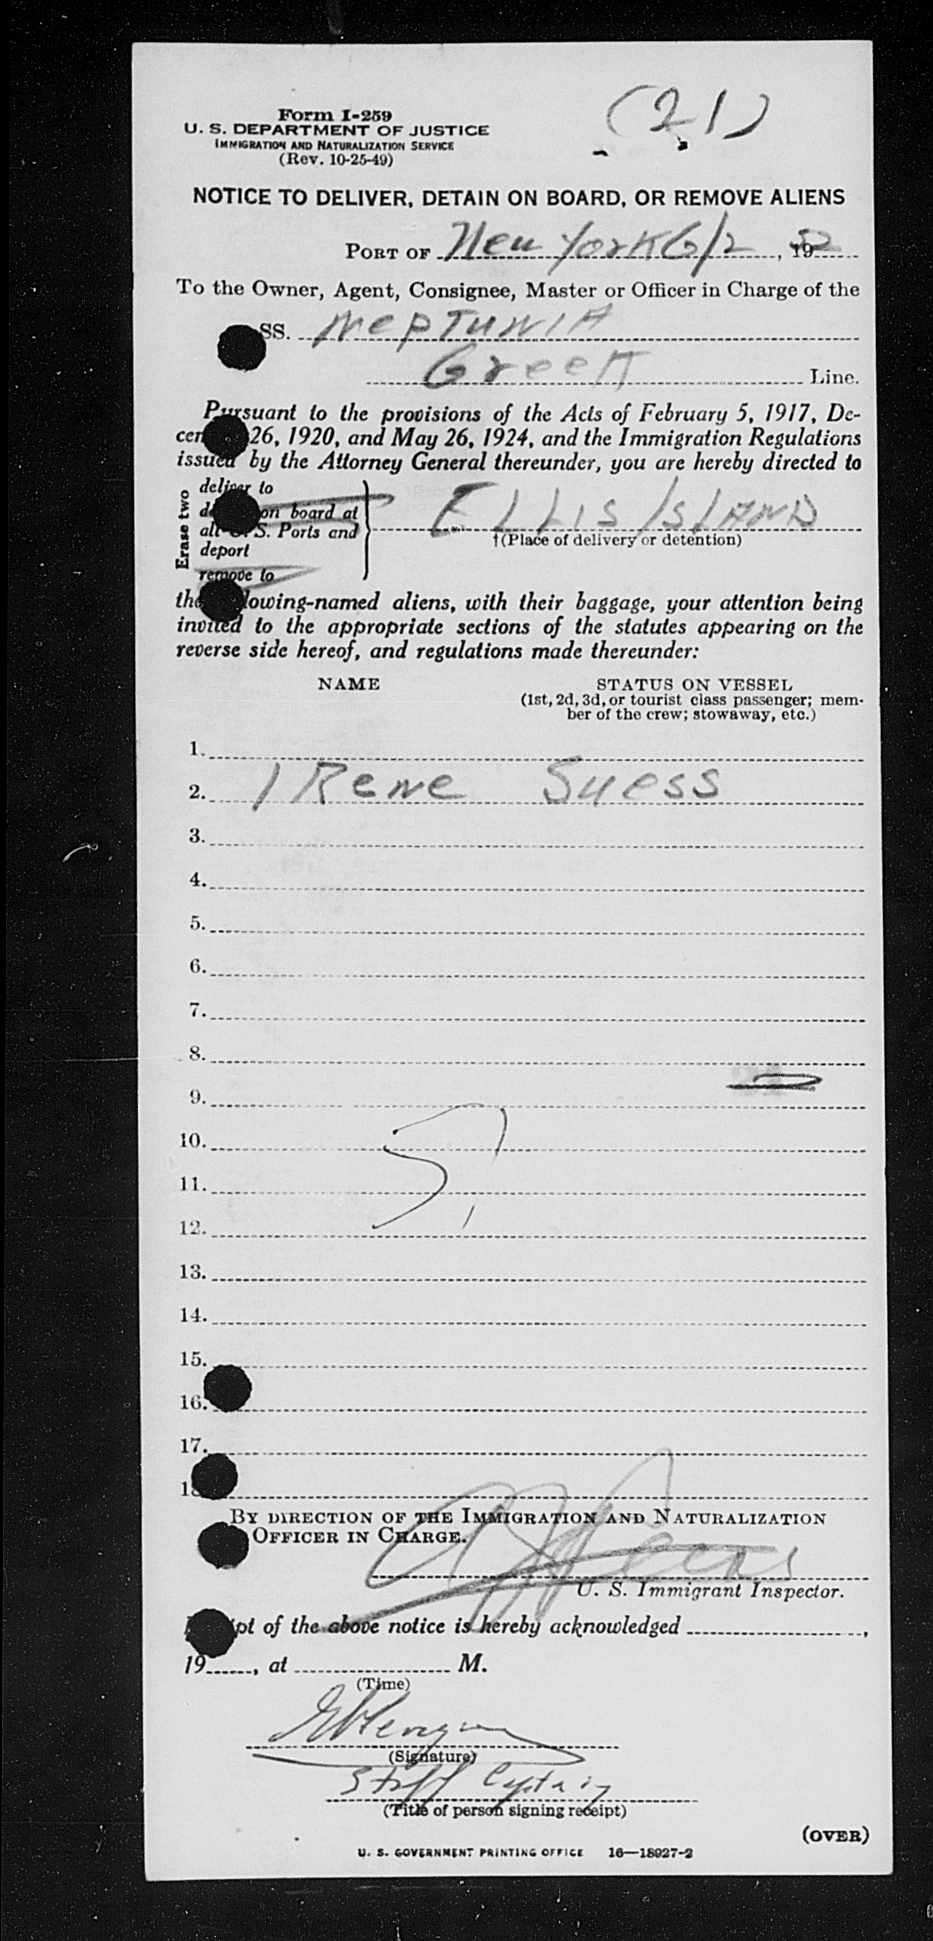 Form I-259
(21)
U. S. DEPARTMENT OF JUSTICE
IMMIGRATION AND NATURALIZATION SERVICE
(Rev. 10-25-49)
NOTICE TO DELIVER, DETAIN ON BOARD, OR REMOVE ALIENS
PORT OF New York 6/2, 1952
To the Owner, Agent, Consignee, Master or Officer in Charge of the
SS. Neptunia
Greek Line.
Pursuant to the provisions of the Acts of February 5, 1917, De-
26, 1920, and May 26, 1924, and the Immigration Regulations
issued by the Attorney General thereunder, you are hereby directed to
Erase two
deliver to
on board at
all U.S. Ports and
deport
remove to
ELLIS ISLAND
†(Place of delivery or detention)
the following-named aliens, with their baggage, your attention being
invited to the appropriate sections of the statutes appearing on the
reverse side hereof, and regulations made thereunder:
NAME STATUS ON VESSEL
(1st, 2d, 3d, or tourist class passenger; mem-
ber of the crew; stowaway, etc.)
1.
2. IRene Suess
3.
4.
5.
6.
7.
8.
9.
10.
11.
12.
13.
14.
15.
16.
17.
BY DIRECTION OF THE IMMIGRATION AND NATURALIZATION
OFFICER IN CHARGE.
U. S. Immigrant Inspector.
of the above notice is hereby acknowledged ,
19 , at M.
(Time)
(Signature)
Staff Captain
(Title of person signing receipt)
(OVER)
U. S. GOVERNMENT PRINTING OFFICE 16—18927-2